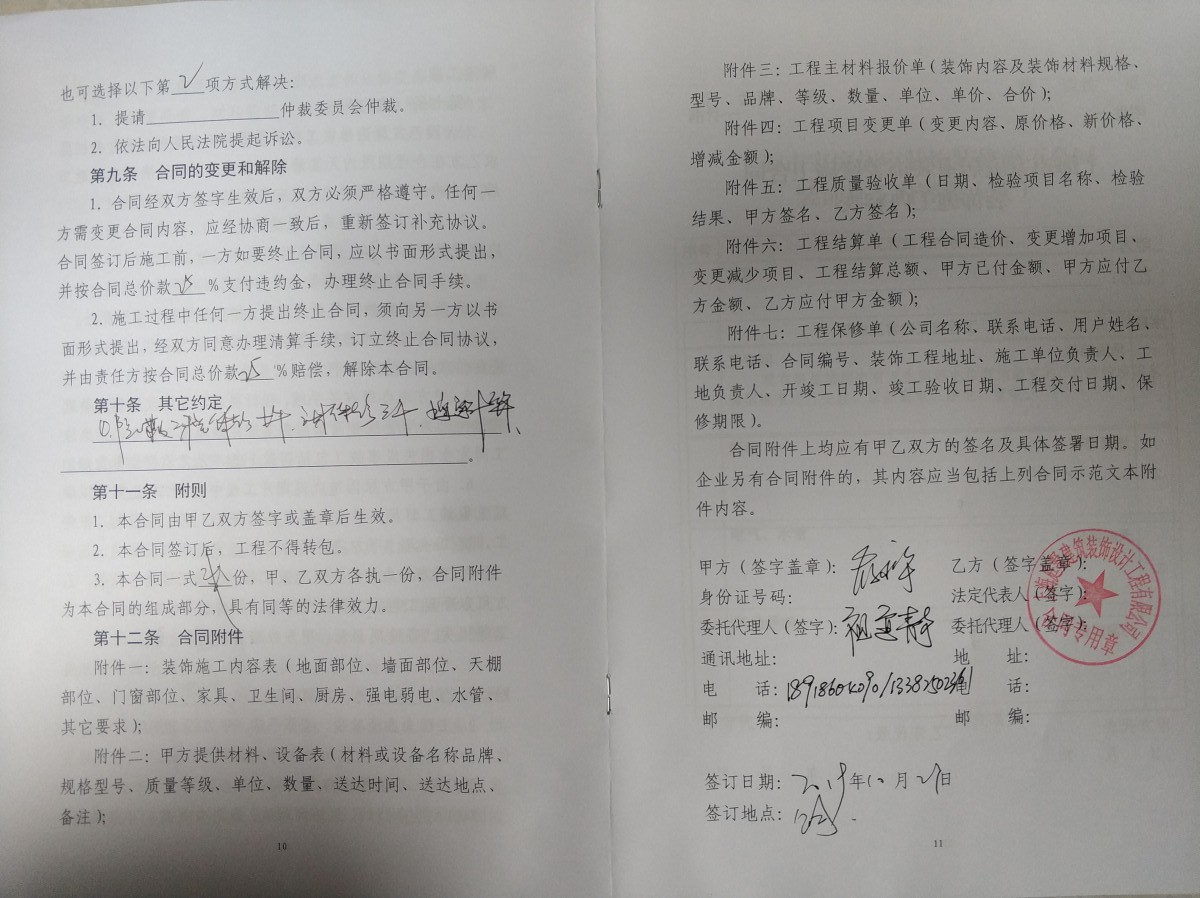 也可选择以下第 2 项方式解决:
1. 提请____________仲裁委员会仲裁。
2. 依法向人民法院提起诉讼。
第九条 合同的变更和解除
1. 合同经双方签字生效后,双方必须严格遵守。任何一
方需变更合同内容,应经协商一致后,重新签订补充协议。
合同签订后施工前,一方如要终止合同,应以书面形式提出,
并按合同总价款 25 %支付违约金,办理终止合同手续。
2. 施工过程中任何一方提出终止合同,须向另一方以书
面形式提出,经双方同意办理清算手续,订立终止合同协议,
并由责任方按合同总价款 25 %赔偿,解除本合同。
第十条 其它约定
。
第十一条 附则
1. 本合同由甲乙双方签字或盖章后生效。
2. 本合同签订后,工程不得转包。
3. 本合同一式 份,甲、乙双方各执一份,合同附件
为本合同的组成部分,具有同等的法律效力。
第十二条 合同附件
附件一:装饰施工内容表(地面部位、墙面部位、天棚
部位、门窗部位、家具、卫生间、厨房、强电弱电、水管、
其它要求);
附件二:甲方提供材料、设备表(材料或设备名称品牌、
规格型号、质量等级、单位、数量、送达时间、送达地点、
备注);
10
附件三:工程主材料报价单(装饰内容及装饰材料规格、
型号、品牌、等级、数量、单位、单价、合价);
附件四:工程项目变更单(变更内容、原价格、新价格、
增减金额);
附件五:工程质量验收单(日期、检验项目名称、检验
结果、甲方签名、乙方签名);
附件六:工程结算单(工程合同造价、变更增加项目、
变更减少项目、工程结算总额、甲方已付金额、甲方应付乙
方金额、乙方应付甲方金额);
附件七:工程保修单(公司名称、联系电话、用户姓名、
联系电话、合同编号、装饰工程地址、施工单位负责人、工
地负责人、开竣工日期、竣工验收日期、工程交付日期、保
修期限)。
合同附件上均应有甲乙双方的签名及具体签署日期。如
企业另有合同附件的,其内容应当包括上列合同示范文本附
件内容。
甲方(签字盖章): 乙方(签字盖章):
身份证号码: 法定代表人(签字):
委托代理人(签字): 委托代理人(签字):
通讯地址: 地 址:
电 话: 电 话:
邮 编: 邮 编:
建筑装饰设计工程有限公司
合同专用章
签订日期: 年12月29日
签订地点:
11